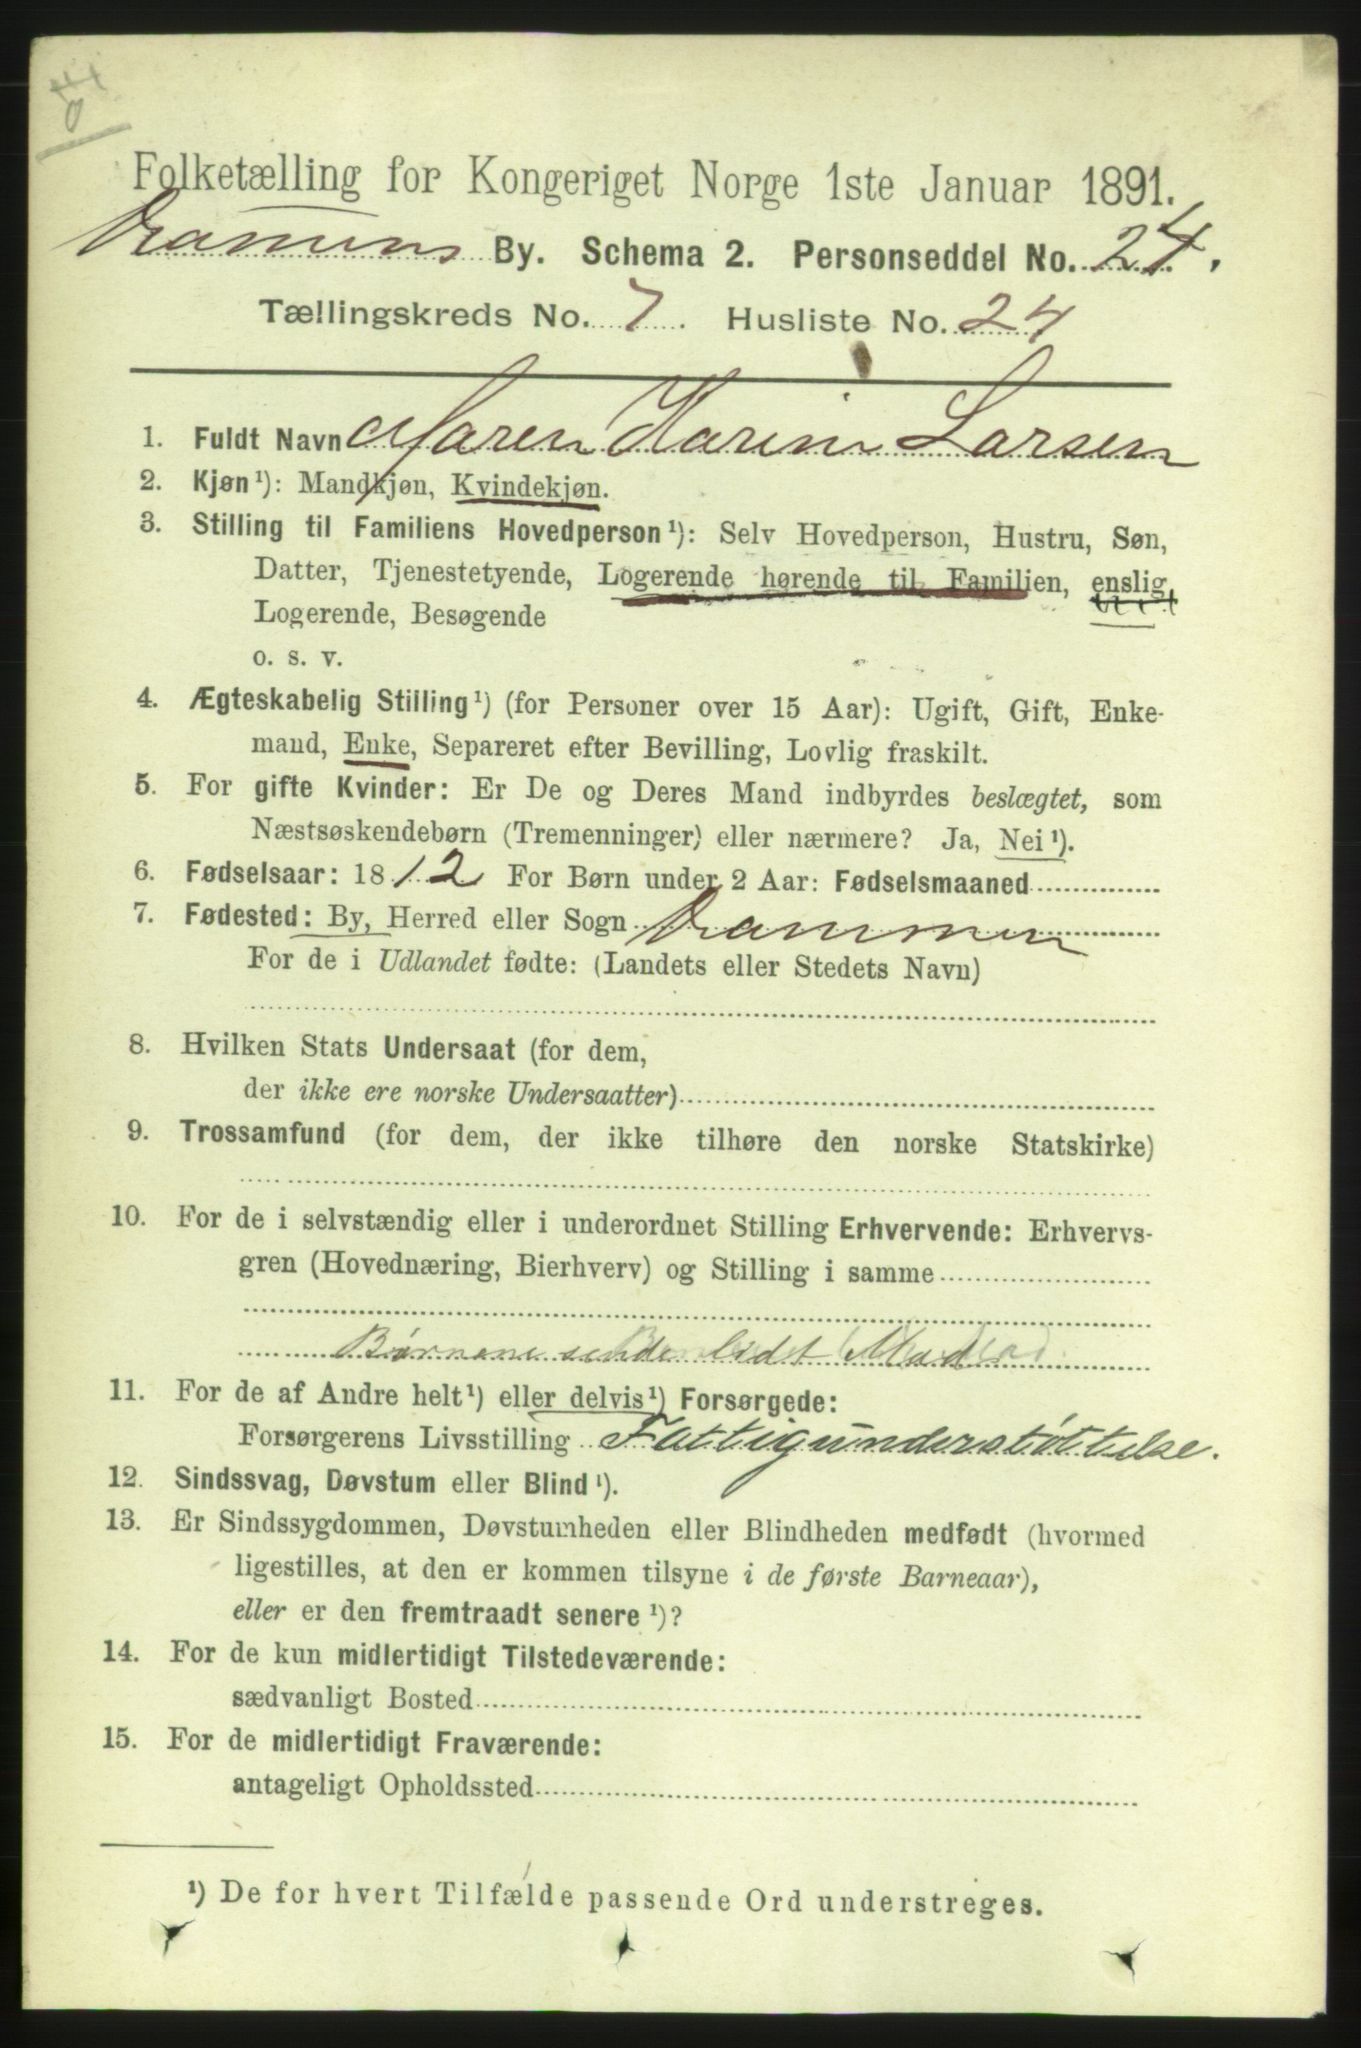 Folketælling for Kongeriget Norge 1ste Januar 1891.
Drammens By. Schema 2. Personseddel No. 24.
Tællingskreds No. 7. Husliste No. 24
1. Fuldt Navn Maren Karin Larsen
2. Kjøn ¹): Mandkjøn, Kvindekjøn.
3. Stilling til Familiens Hovedperson ¹): Selv Hovedperson, Hustru, Søn,
Datter, Tjenestetyende, Logerende hørende til Familien, enslig
Logerende, Besøgende
o. s. v.
4. Ægteskabelig Stilling ¹) (for Personer over 15 Aar): Ugift, Gift, Enke-
mand, Enke, Separeret efter Bevilling, Lovlig fraskilt.
5. For gifte Kvinder: Er De og Deres Mand indbyrdes beslægtet, som
Næstsøskendebørn (Tremenninger) eller nærmere? Ja, Nei ¹).
6. Fødselsaar: 1812 For Børn under 2 Aar: Fødselsmaaned
7. Fødested: By, Herred eller Sogn Drammen
For de i Udlandet fødte: (Landets eller Stedets Navn)
8. Hvilken Stats Undersaat (for dem,
der ikke ere norske Undersaatter)
9. Trossamfund (for dem, der ikke tilhøre den norske Statskirke)
10. For de i selvstændig eller i underordnet Stilling Erhvervende: Erhvervs-
gren (Hovednæring, Bierhverv) og Stilling i samme
Børnene sender lidt Mad
11. For de af Andre helt ¹) eller delvis ¹) Forsørgede:
Forsørgerens Livsstilling Fattigunderstøttelse.
12. Sindssvag, Døvstum eller Blind ¹).
13. Er Sindssygdommen, Døvstumheden eller Blindheden medfødt (hvormed
ligestilles, at den er kommen tilsyne i de første Barneaar),
eller er den fremtraadt senere ¹)?
14. For de kun midlertidigt Tilstedeværende:
sædvanligt Bosted
15. For de midlertidigt Fraværende:
antageligt Opholdssted
¹) De for hvert Tilfælde passende Ord understreges.